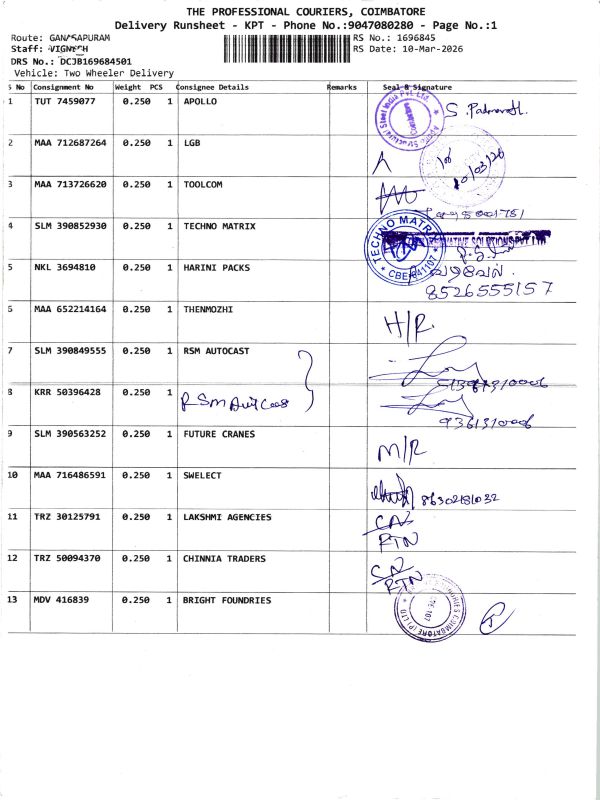 THE PROFESSIONAL COURIERS, COIMBATORE
Delivery Runsheet - KPT - Phone No.:9047080280 - Page No.:1
Route: GANASAPURAM
Staff: VIGNESH
DRS No.: DCJB169684501
Vehicle: Two Wheeler Delivery
RS No.: 1696845
RS Date: 10-Mar-2026
S No Consignment No Weight PCS Consignee Details Remarks Seal & Signature
1 TUT 7459077 0.250 1 APOLLO
S. Padmavathi
2 MAA 712687264 0.250 1 LGB
10/03/26
3 MAA 713726620 0.250 1 TOOLCOM
4 SLM 390852930 0.250 1 TECHNO MATRIX
TECHNO MATRIX
5 NKL 3694810 0.250 1 HARINI PACKS
8526555157
6 MAA 652214164 0.250 1 THENMOZHI
H/R.
7 SLM 390849555 0.250 1 RSM AUTOCAST
8 KRR 50396428 0.250 1
RSM Autocast
9361310006
9 SLM 390563252 0.250 1 FUTURE CRANES
M/R
10 MAA 716486591 0.250 1 SWELECT
11 TRZ 30125791 0.250 1 LAKSHMI AGENCIES
CN/
RTN
12 TRZ 50094370 0.250 1 CHINNIA TRADERS
CN/
RTN
13 MDV 416839 0.250 1 BRIGHT FOUNDRIES